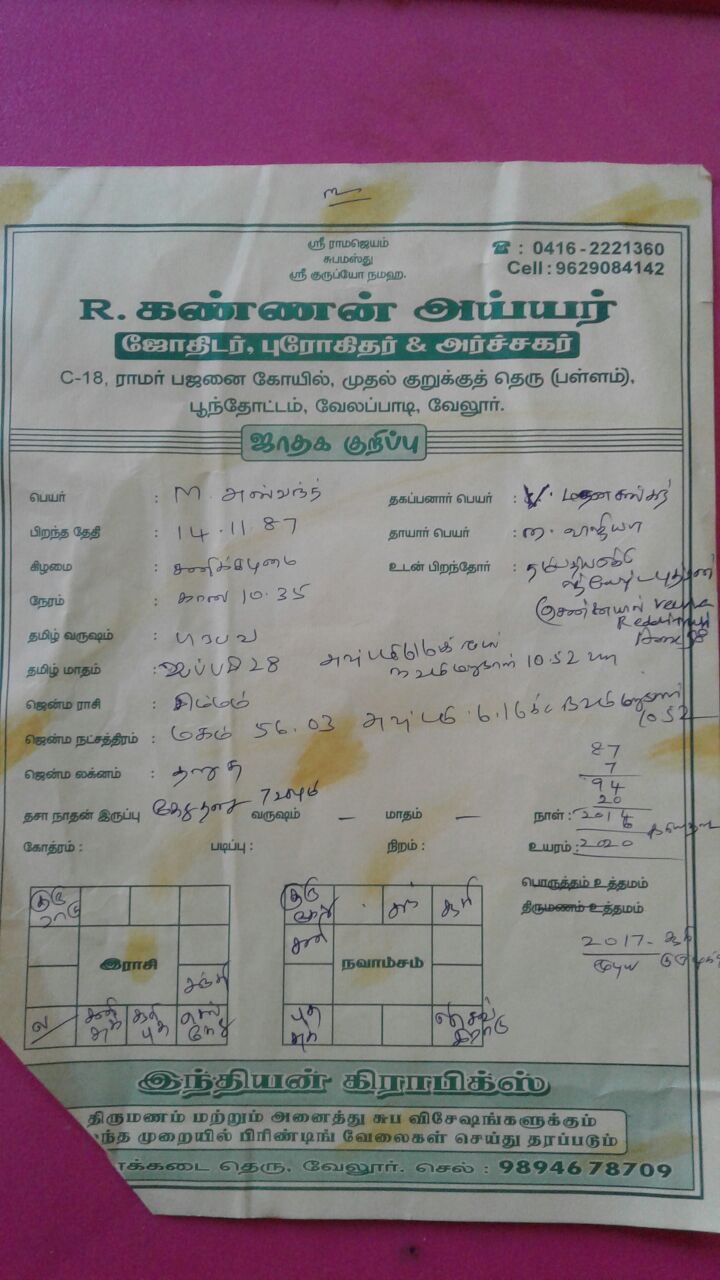 ஸ்ரீ ராமஜெயம்
சுபமஸ்து
ஸ்ரீ குருப்யோ நமஹ.
☎ : 0416-2221360
Cell : 9629084142
R. கண்ணன் அய்யர்
ஜோதிடர், புரோகிதர் & அர்ச்சகர்
C-18, ராமர் பஜனை கோயில், முதல் குறுக்குத் தெரு (பள்ளம்),
பூந்தோட்டம், வேலப்பாடி, வேலூர்.
ஜாதக குறிப்பு
பெயர் : M. அஸ்வந்த் தகப்பனார் பெயர் : V.
பிறந்த தேதி : 14.11.87 தாயார் பெயர் : ம.
கிழமை : சனிக்கிழமை உடன் பிறந்தோர் :
நேரம் : காலை 10.35
தமிழ் வருஷம் : பிரபவ
தமிழ் மாதம் : ஐப்பசி 28 10.52
ஜென்ம ராசி : சிம்மம்
ஜென்ம நட்சத்திரம் : மகம் 56.03 10.52
ஜென்ம லக்னம் : தனுசு
87
7
94
20
தசா நாதன் இருப்பு கேதுதசை 7 வருஷம் வருஷம் – மாதம் – நாள் : 2014
6
கோத்ரம் : படிப்பு : நிறம் : உயரம் : 2020
பொருத்தம் உத்தமம்
திருமணம் உத்தமம்
2017-
குரு
ராகு
இராசி
சந்
ல
சனி
சுக்
சூரி
புத
செவ்
கேது
குரு
சுக்
சூரி
சனி
நவாம்சம்
புத
இந்தியன் கிராபிக்ஸ்
திருமணம் மற்றும் அனைத்து சுப விசேஷங்களுக்கும்
முறையில் பிரிண்டிங் வேலைகள் செய்து தரப்படும்
தெரு, வேலூர். செல் : 98946 78709